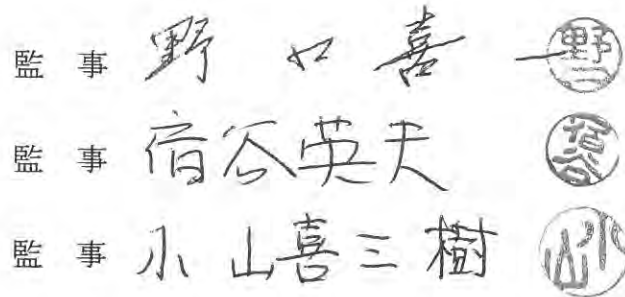 監 事 野 口 喜 一 野口
監 事 宿谷英夫 宿谷
監 事 小山喜三樹 小山